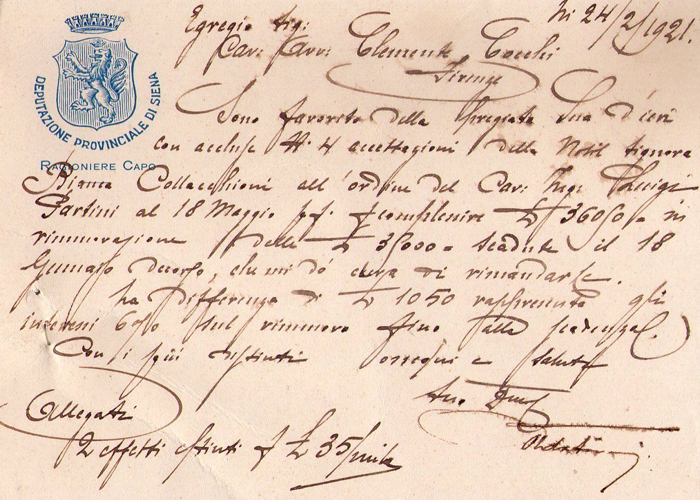 DEPUTAZIONE PROVINCIALE DI SIENA
RAGIONIERE CAPO
li 24/2/1921.
Egregio Sig:
Cav: Avv: Clemente Cocchi
Firenze
Sono favorito della pregiata Sua d'ieri
con accluse N. 4 accettazioni della Nobil Signora
Bianca Collacchioni all'ordine del Cav: Ing:
Partini al 18 Maggio per £ 36050 in
rinnovazione delle £ 35000 scadute il 18
Gennaio decorso, che mi dò cura di rimandarle.
La differenza di £ 1050 rappresenta gli
interessi 6% sul rinnovo fino alla scadenza.
Con i più distinti ossequi e saluti
Suo
Allegati
2 effetti estinti £ 35/mila